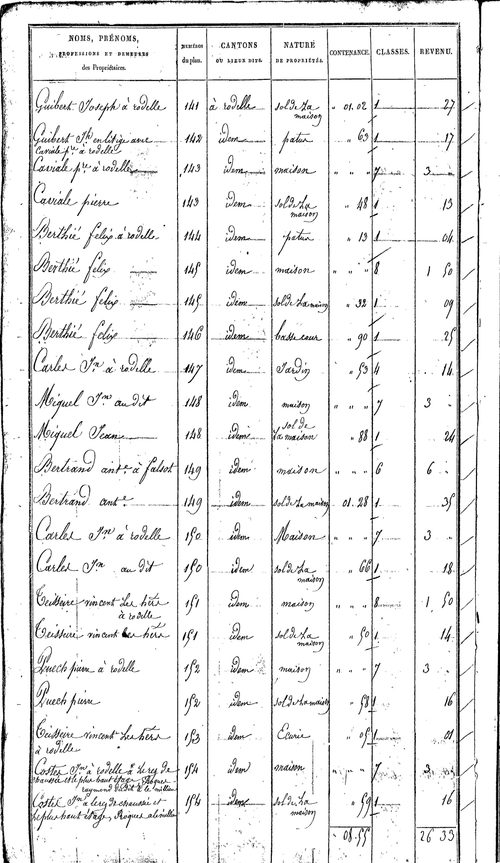 NOMS, PRÉNOMS, PROFESSIONS ET DEMEURES des Propriétaires. NUMÉROS du plan. CANTONS OU LIEUX DITS. NATURE DE PROPRIÉTÉS. CONTENANCE. CLASSES. REVENU.
Guibert Joseph à rodelle 141 à rodelle sol de la maison 01.02 1 27
Guibert Jh en litige avec Caviale pre à rodelle 142 idem patus " 63 1 17
Caviale pre à rodelle 143 idem maison " " " 7 3 "
Caviale pierre 143 idem sol de la maison " 48 1 13
Berthié felix à rodelle 144 idem patus " 13 1 04
Berthié felix 145 idem maison " " " 8 1 50
Berthié felix 145 idem sol de la maison " 32 1 09
Berthié felix 146 idem basse cour " 90 1 25
Carles Jn à rodelle 147 idem Jardin " 53 4 14
Miquel Jn au dit 148 idem maison " " " 7 3
Miquel Jean 148 idem sol de la maison " 88 1 24
Bertrand ante à 149 idem maison " " " 6 6 "
Bertrand ante 149 idem sol de la maison 01.28 1 35
Carles Jn à rodelle 150 idem Maison " " " 7 3
Carles Jn au dit 150 idem sol de la maison " 66 1 18
Teisseire vincent les hers à rodelle 151 idem maison " " " 8 1 50
Teisseire vincent les hers 151 idem sol de la maison " 50 1 14
Puech pierre à rodelle 152 idem maison " " " 7 3
Puech pierre 152 idem sol de la maison " 58 1 16
Teisseire vincent les hers à rodelle 153 idem Ecurie " 05 1 01
Costes Jn à rodelle à le rez de chaussée et le plus haut étage raymond dudit à le milieu 154 idem maison " " " 7 3
Costes Jn à le rez de chaussée et le plus haut étage, 154 idem sol de la maison " 59 1 16
08.55 26 33